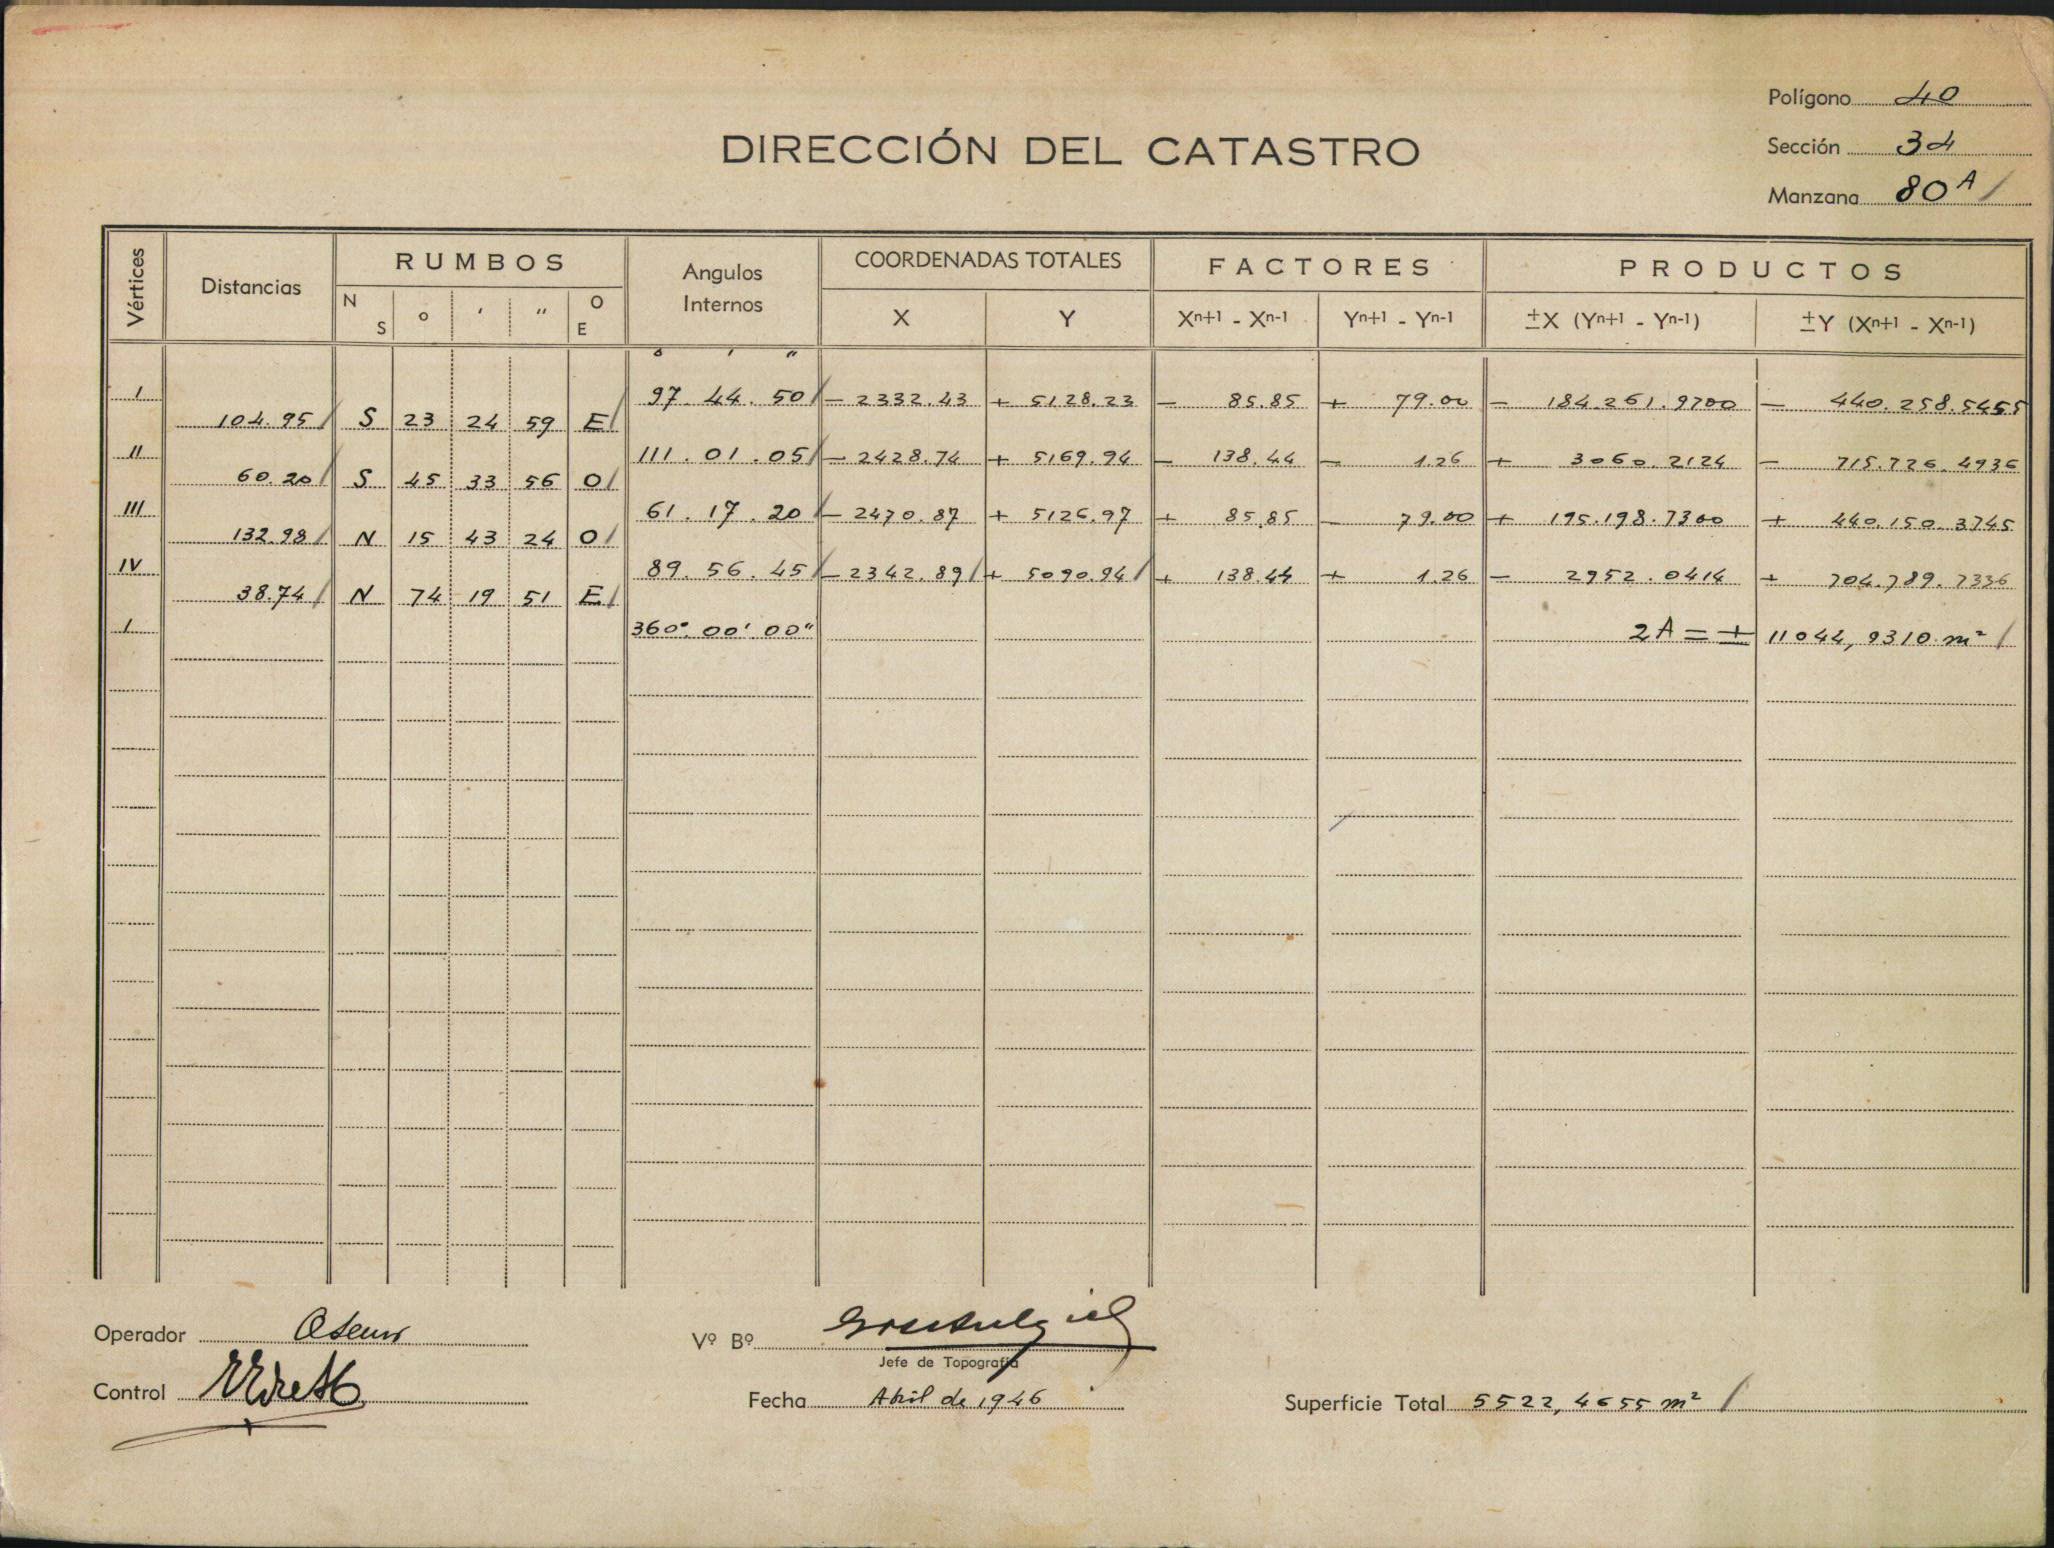 Polígono 40
Sección 34
Manzana 80 A /
DIRECCIÓN DEL CATASTRO
Vértices Distancias RUMBOS Angulos Internos COORDENADAS TOTALES FACTORES PRODUCTOS
N S ° ' " O E X Y Xn+1 - Xn-1 Yn+1 - Yn-1 ±X (Yn+1 - Yn-1) ±Y (Xn+1 - Xn-1)
° ' "
I 97. 44. 50 / - 2332.43 + 5128.23 - 85.85 + 79.00 - 184.261.9700 - 440.258.5455
104.95 / S 23 24 59 E /
II 111. 01. 05 / - 2428.74 + 5169.94 - 138.44 - 1.26 + 3060.2124 - 715.726.4936
60.20 / S 45 33 56 O /
III 61. 17. 20 / - 2470.87 + 5126.97 + 85.85 - 79.00 + 195.198.7300 + 440.150.3745
132.98 / N 15 43 24 O /
IV 89. 56. 45 / - 2342.89 / + 5090.94 / + 138.44 + 1.26 - 2952.0414 + 704.789.7336
38.74 / N 74 19 51 E /
I 360° 00' 00" 2A = + 11044,9310 m² /
Operador
Control
Vº Bº
Jefe de Topografía
Fecha Abril de 1946
Superficie Total 5522,4655 m² /